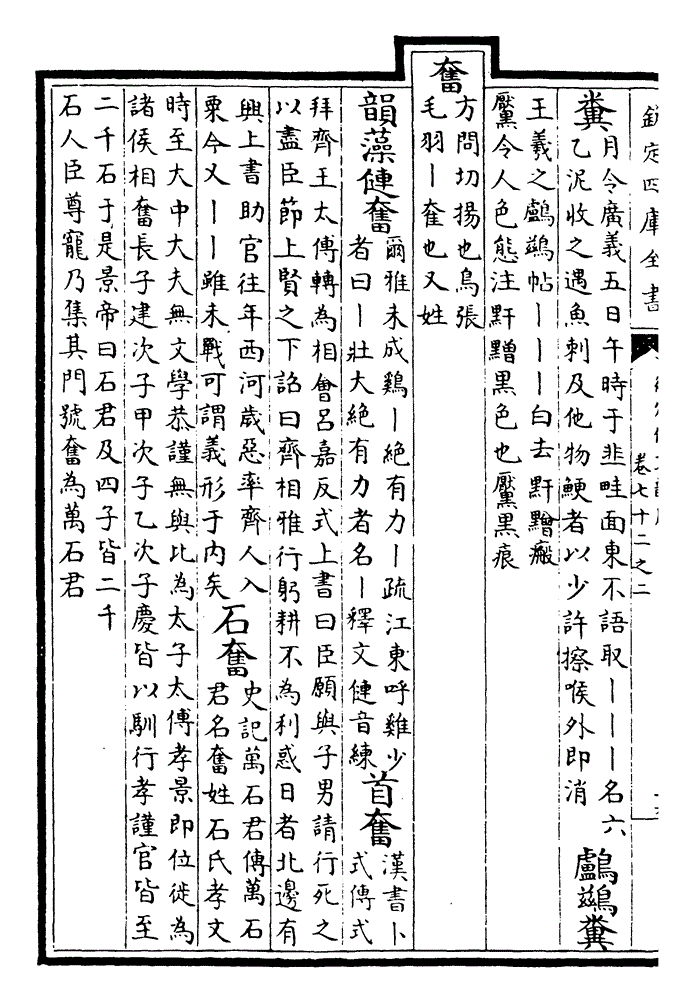 欽定四庫全書
卷七十二之二
糞
月令廣義五日午時于韭畦面東不語取丨丨丨名六
乙泥收之遇魚刺及他物鯁者以少許擦喉外即消
鸕鷀糞
王羲之鸕鷀帖丨丨丨白去䵟瘢
黶令人色態注䵟黑色也黶黑痕
奮
方問切揚也鳥張
毛羽丨奞也又姓
韻藻僆奮
爾雅未成鷄丨絶有力丨疏江東呼雞少
者曰丨壯大絶有力者名丨釋文僆音練
首奮
漢書卜
式傳式
拜齊王太傅轉為相會呂嘉反式上書曰臣願與子男請行死之
以盡臣節上賢之下詔曰齊相雅行躬耕不為利惑日者北邊有
興上書助官往年西河歲惡率齊人入
粟今又丨丨雖未戰可謂義形于内矣
石奮
史記萬石君傳萬石
君名奮姓石氏孝文
時至大中大夫無文學恭謹無與比為太子太傅孝景即位徙為
諸侯相奮長子建次子甲次子乙次子慶皆以馴行孝謹官皆至
二千石于是景帝曰石君及四子皆二千
石人臣尊寵乃集其門號奮為萬石君